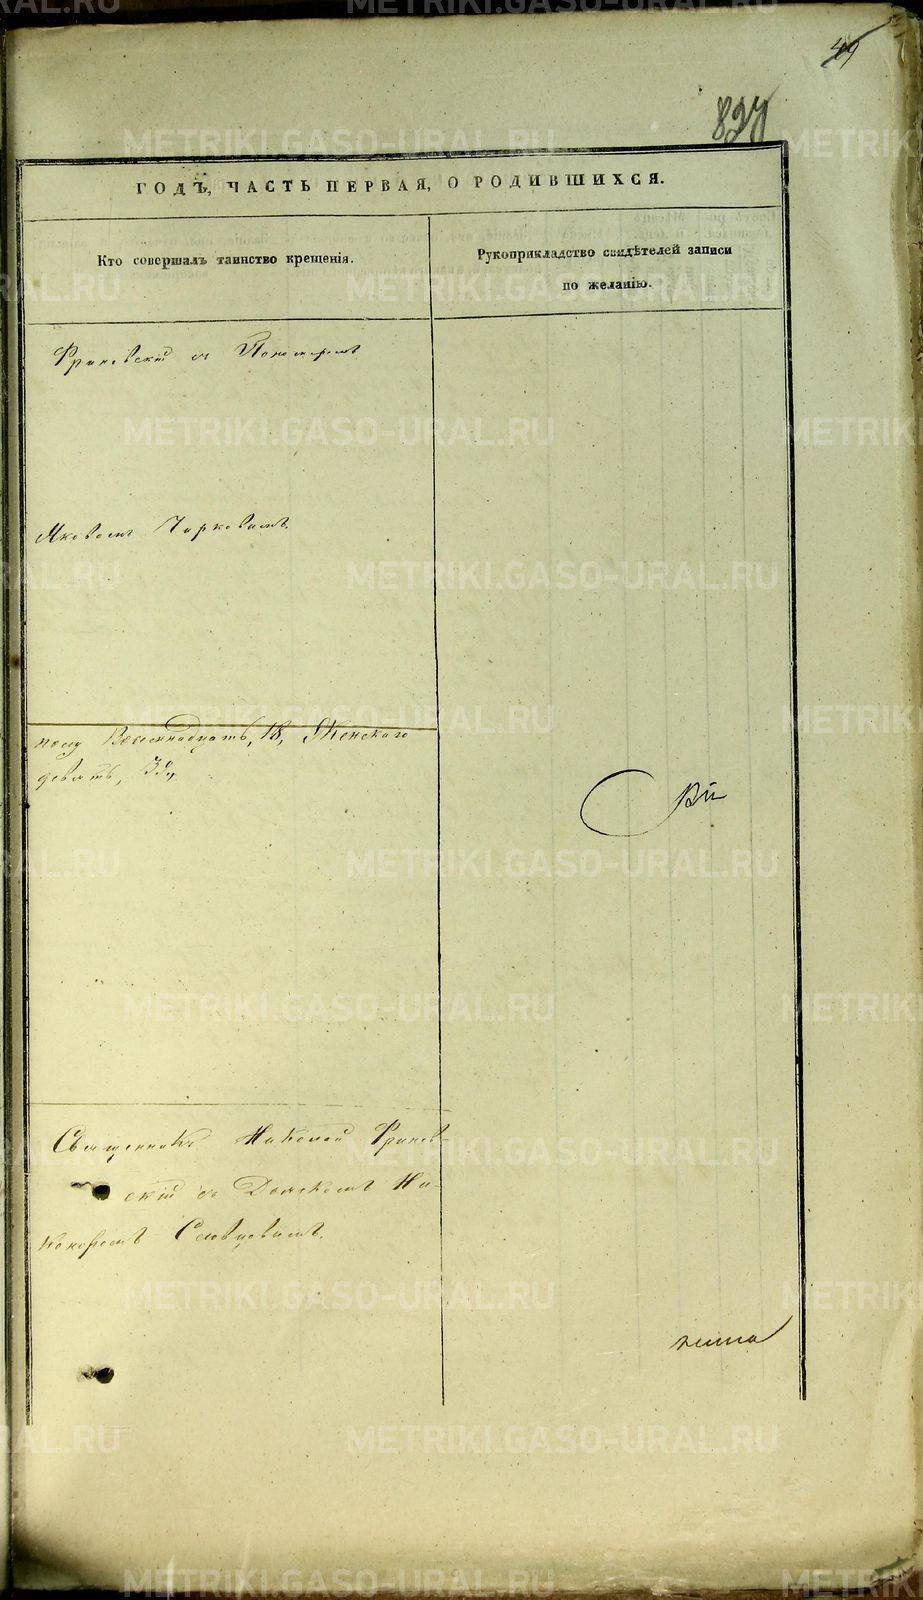 49
827
ГОДЪ, ЧАСТЬ ПЕРВАЯ, О РОДИВШИХСЯ.
Кто совершалъ таинство крещенія.
Рукоприкладство свидѣтелей записи
по желанію.
Фриновскій съ Пономаремъ
Яковомъ Чирковымъ.
полу Восемнадцать, 18, Женскаго
девять,
Священникъ Николай Фринов-
скій съ Дьячкомъ Ни-
каноромъ Словцовымъ.
METRIKI.GASO-URAL.RU